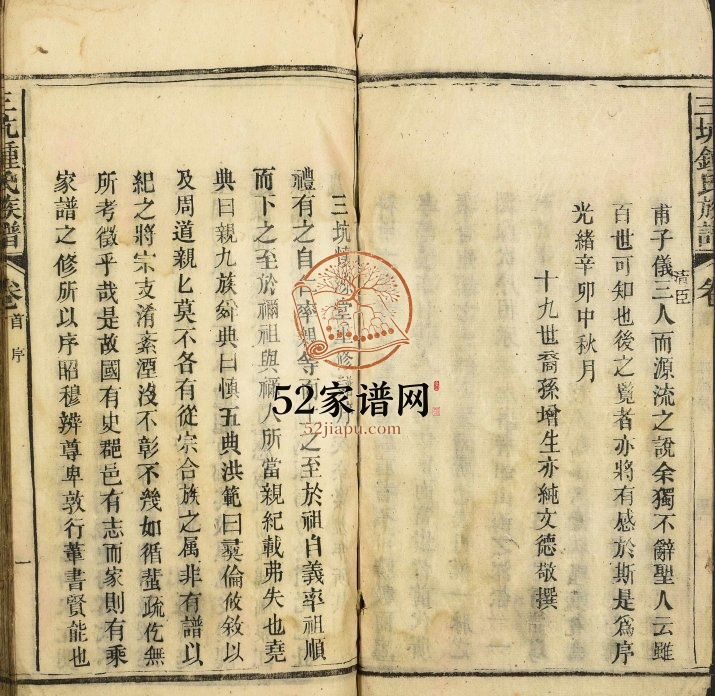 三坑鍾氏族譜
卷
甫子儀清臣三人而源流之說余獨不辭聖人云雖
百世可知也後之覽者亦將有感於斯是為序
光緒辛卯中秋月
十九世裔孫增生亦純文德敬撰
三坑堂重修
禮有之自率親等而之至於祖自義率祖順
而下之至於禰祖與禰人所當親紀載弗失也堯
典曰親九族舜典曰慎五典洪範曰彞倫攸敘以
及周道親親莫不各有從宗合族之属非有譜以
紀之將宗支淆紊湮沒不彰不幾如循蜚疏仡無
所考徵乎哉是故國有史郡邑有志而家則有乘
家譜之修所以序昭穆辨尊卑敦行葦書賢能也
三坑鍾氏族譜
卷首
序
一
52家谱网
52jiapu.com